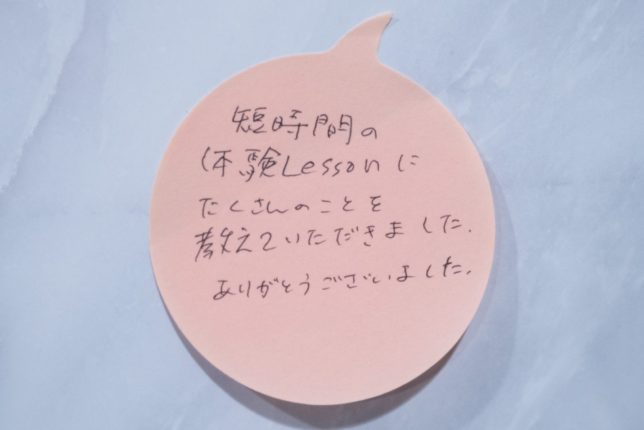 短時間の
体験Lessonに
たくさんのことを
教えていただきました.
ありがとうございました.